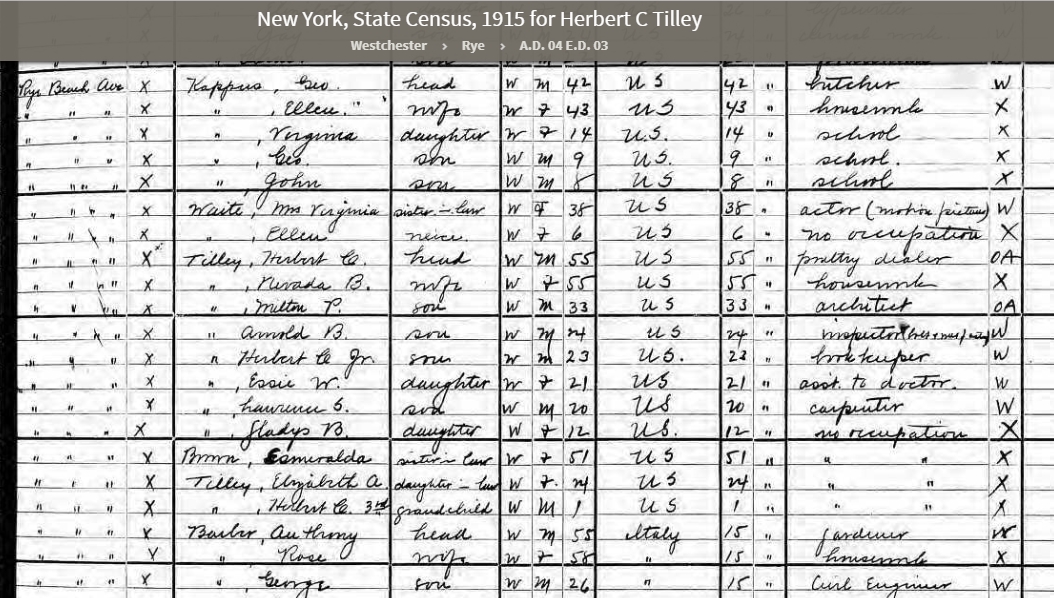 New York, State Census, 1915 for Herbert C Tilley
Westchester › Rye › A.D. 04 E.D. 03
Rye Beach Ave X Kappus, Geo. head W M 42 U S 42 " butcher W
" " " X " , Ellen " wife W F 43 U S 43 " housework X
" " " X " , Virginia daughter W F 14 U.S. 14 " school X
" " " X " , Geo. son W M 9 U.S. 9 " school. X
" " " X " , John son W M 8 U S 8 " school X
" " " X Waite, Mrs Virginia sister-in-law W F 38 U S 38 " actor (motion picture) W
" " " X " , Ellen neice. W F 6 U S 6 " no occupation X
" " " X Tilley, Herbert C. head W M 55 U S 55 " poultry dealer OA
" " " X " , Nevada B. wife W F 55 U S 55 " housework X
" " " X " , Milton P. son W M 33 U S 33 " architect OA
" " " X " Arnold B. son W M 24 U S 24 " inspector W
" " " X " Herbert C. Jr. son W M 23 U S. 23 " bookkeeper W
" " " X " , Essie W. daughter W F 21 U S 21 " asst. to doctor. W
" " " X " , Lawrence S. son W M 20 U S 20 " carpenter W
" " " X " , Gladys B. daughter W F 12 U.S. 12 " no occupation X
" " " X Brown, Esmeralda sister in law W F 51 U S 51 " " " X
" " " X Tilley, Elizabeth A. daughter-in-law W F. 24 U S 24 " " X
" " " X " , Herbert C. 3rd grandchild W M 1 U S 1 " " " X
" " " X Barber, Anthony head W M 55 Italy 15 " gardener W
" " " X " Rose wife W F 58 " 15 " housework X
" " " X " , George son W M 26 " 15 " Civil Engineer W